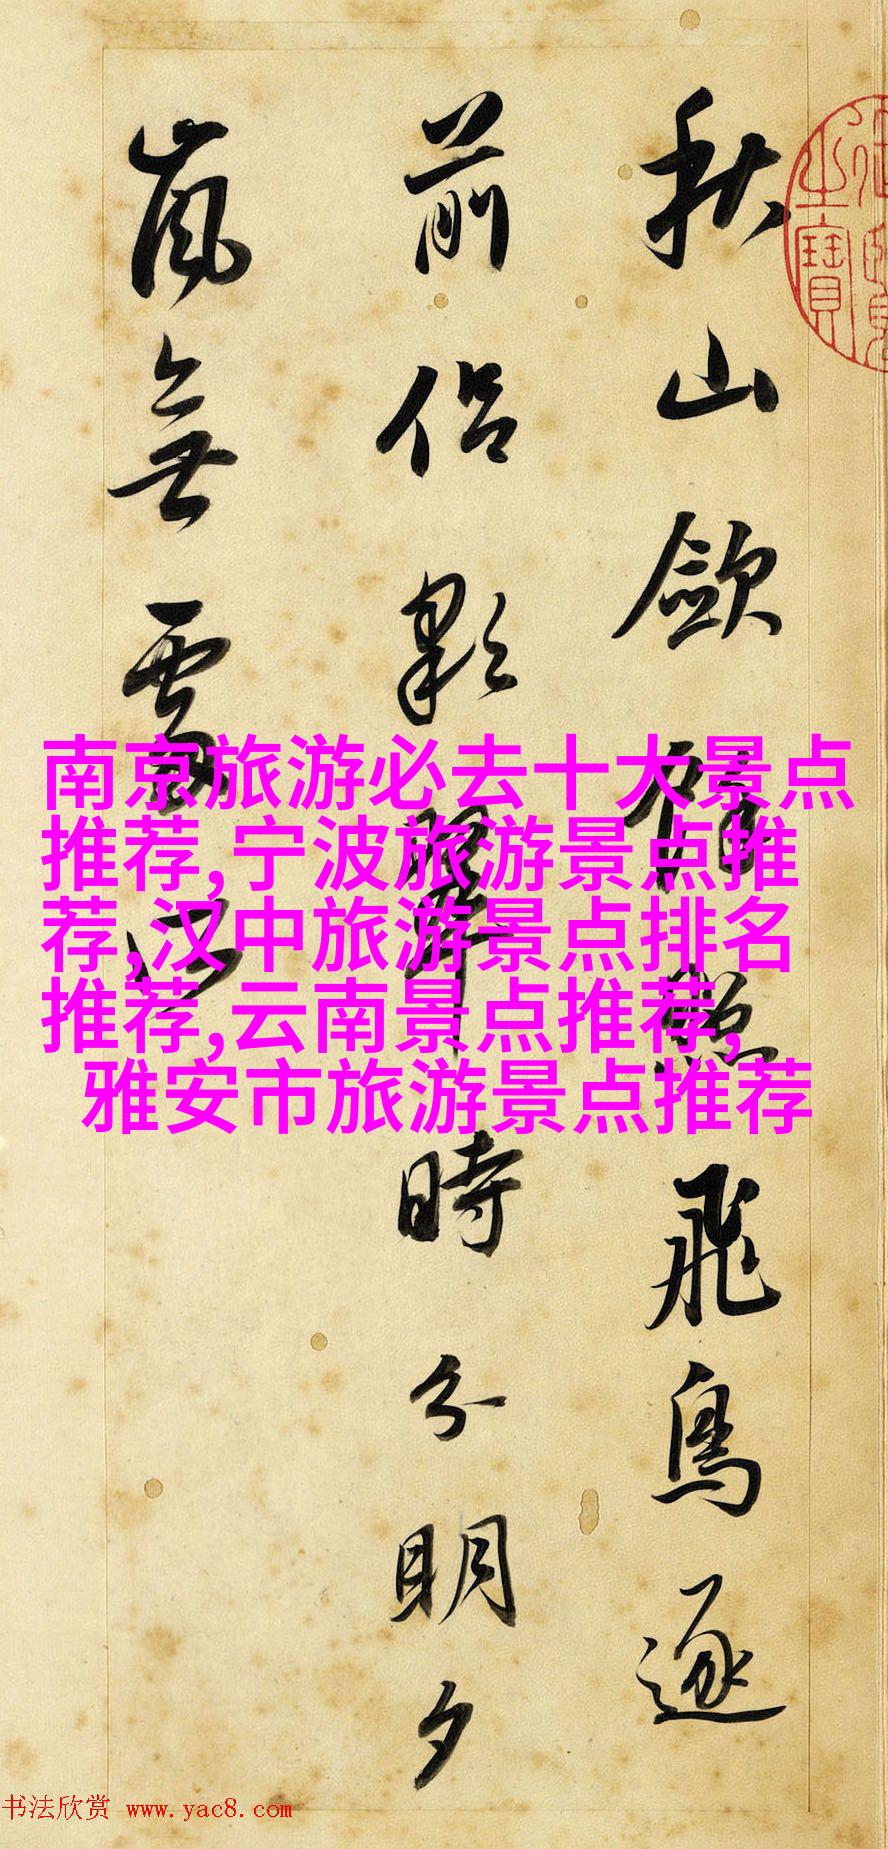 秋山歛餘照飛鳥逐
前侣彩翠時分明夕
嵐無處所
之寶
南京旅游必去十大景点
推荐,宁波旅游景点推
荐,汉中旅游景点排名
推荐,云南景点推荐,
雅安市旅游景点推荐
书法欣赏 www.yac8.com